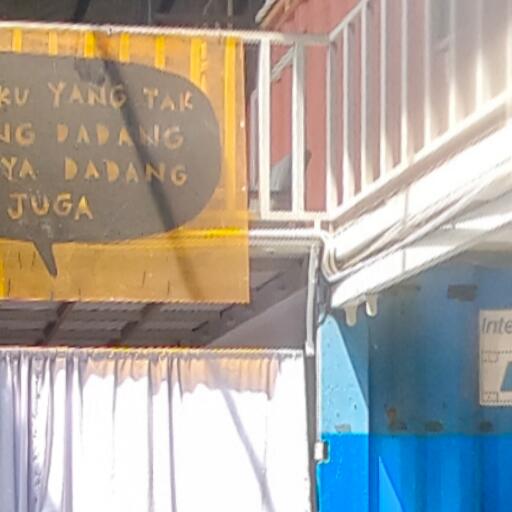 KU YANG TAK
NG DADANG
YA DADANG
JUGA
Inte